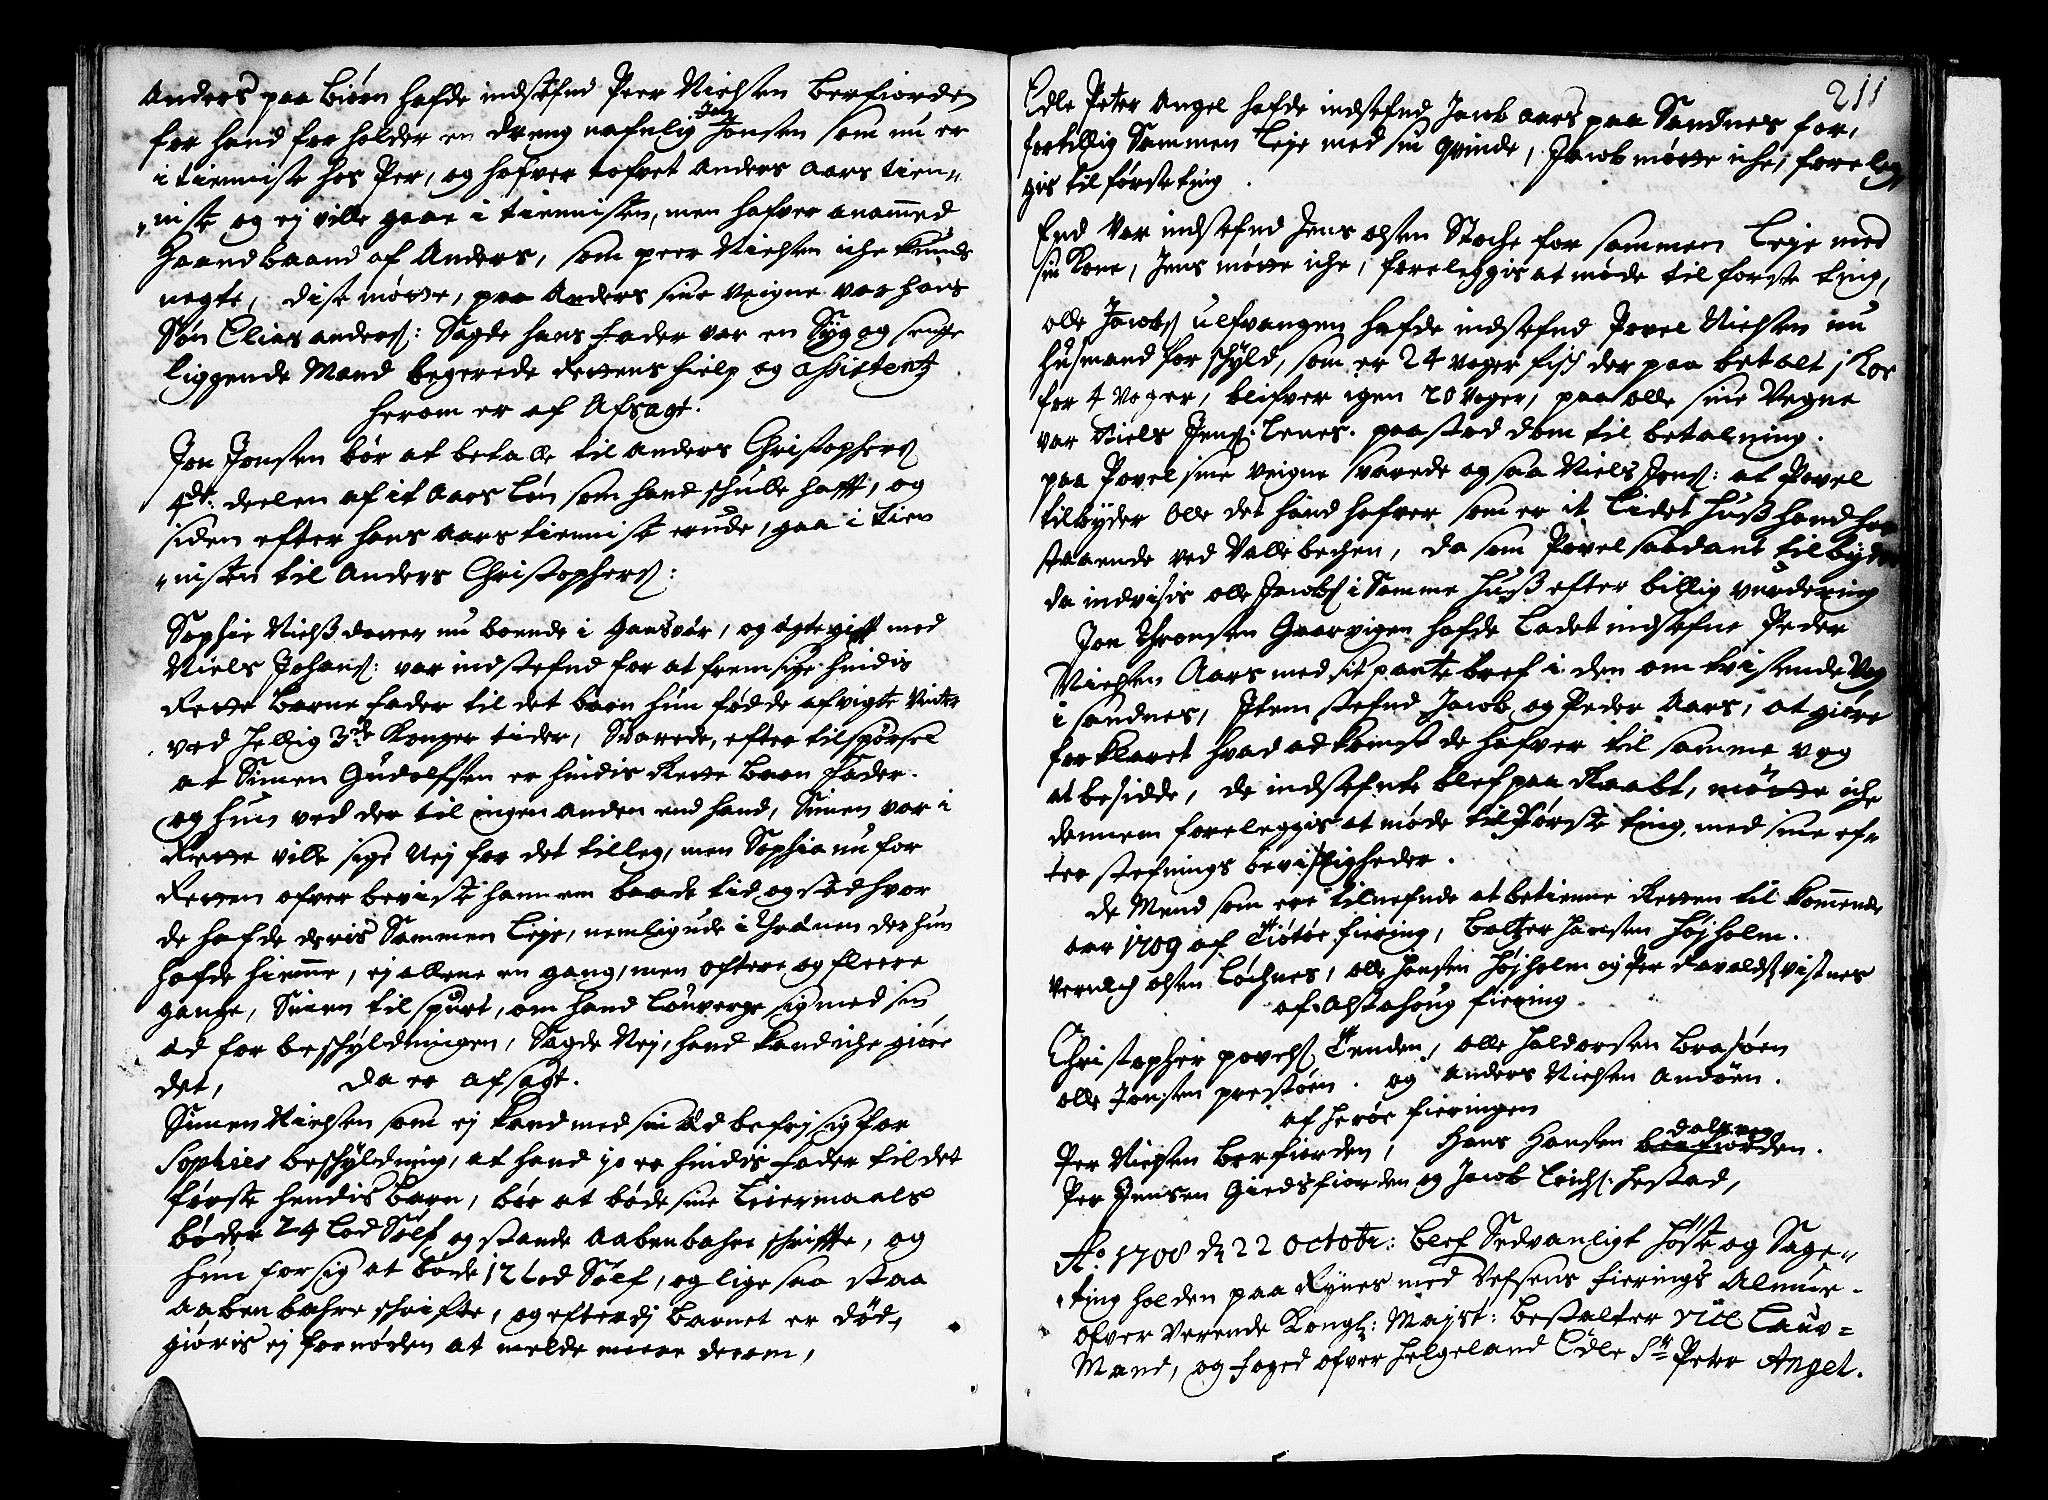 Anders paa Biørn hafde indstefnd Peer Nielsen Berfiorden
for hand for holder en dreng nafnlig Jon Jonsen som nu er
i tienniste hos Per, og hafver lofvet Anders Aars tien„
„niste og ej ville gaae i tiennisten, men hafver anammed
Haandbaand af Anders, som peer Nielsen iche kunde
negte, dise møtte, paa Anders sine Veigne var hans
Søn Elias anders: Sagde hans Fader var en Syg og senge
liggende Mand begerede Rettens hielp og assistentz
herom er af Afsagt.
Jon Jonsen bør at betalle til Anders Christophers
4de: deelen af it Aars Løn som hand schulle hafft, og
siden efter hans aars tienniste er ude, gaa i tien
„nisten til Anders Christophers:
Sophie Nielsdatter nu boende i Gaasvær, og ægtegifft med
Niels Johans: var indstefnd for at fremsige hindis
Rette Barne fader til det barn hun fødde afvigte Vinter
ved hellig 3de Konger tider, Svarede, efter tilspørsel
at Simen Gudolfsen er hindis Rette barn Fader.
og hun ved der til ingen anden end hand, Simen var i
Rette ville sige Nej for det tilleg, men Sophia nu for
Retten ofver beviste hannem baade tid og sted hvor
de hafde deris Sammen Leye, nemlig ude i Thrænen der hun
hafde hiemme, ej allene en gang, men oftere og fleere
gange, Simen tilspurt, om hand Louverge sig med sin
æd for beschyldningen, Sagde Nej, hand kand iche giøre
det, da er afsagt.
Simen Nielsen som ej kand med sin Æd befrj sig for
Sophies beschyldning, at hand jo er hindis fader til det
første hendis barn, bør at bøde sine Leiermaals
bøder 24 Lod Sølf og stande Aabenbahre schriffte, og
hun for sig at bøde 12 Lod Sølf, og lige saa staa
Aabenbahre schrifte, og efterdj barnet er død,
giøris ej fornøden at melde meere derom,
211
Edle Peter Angel hafde indstefnd Jacob aars paa Sandnes for,
fortillig Sammen Leye med sin Qvinde, Jacob møtte iche, foreleg,
gis til første ting.
End var indstefnd Jens olsen Stoche for sammen Leye med
sin Kone, Jens møtte iche, foreleggis at møde til første ting,
olle Jacobs ulfvangen hafde indstefnd Povel Nielsen nu
husmand for schyld, som er 24 voger fisch der paa betalt j Koe
for 4 Voger, blifver igen 20 Voger, paa olle sine Vegne
var Niels Jens: Lenes. paastod dom til betalning.
paa Povel sine veigne svarede og saa Niels Jons: at Povel
tilbyder olle det hand hafver som er it Lidet huus hand har
staaende ved Vallebechen, da som Povel saadant tilbyder
da indvisis olle Jacobs i Samme huus efter billig vurdering
Jon Thronsen Gaarvigen hafde Ladet indstefne Peder
Nielsen Aars med sit pante bref i den omtvistende Vog
i sandnes, Item stefnd Jacob og Peder Aars, at giøre
forklaret hvad adkomst de hafver til samme vog
at besidde, de indstefnte blef paa Raabt, møtte iche
dennem foreleggis at møde til Første ting, med sine ef„
ter stefnings bevisligheder.
de Mend som ere tilnefnde at betienne Retten til kommende
aar 1709 af Tiøtøe fiering, Baltzer hansen høyholm.
olsen Løchnes, olle hansen høyholm og Per Vistnes
af Alstahoug fiering.
Christopher povels Tenden, olle haldorsen Brasøen
olle Jonsen prestøen. og Anders Nielsen Andøen.
af herøe fieringen
Per Nielsen Berfiorden, Hans Hansen berfiorden. dalsvog
Per Jensen Giedsfiorden og Jacob Erichs: hestad,
Ao: 1708 d 22 octobr: blef Sedvanligt Høste og Sage„
„ting holden paa Rynes med Vefsens fierings Almue.
ofver Verende Kongl: Mayst: bestalter Vice Lauv=
Mand, og Foged ofver helgeland Edle Sr Peter Angel.